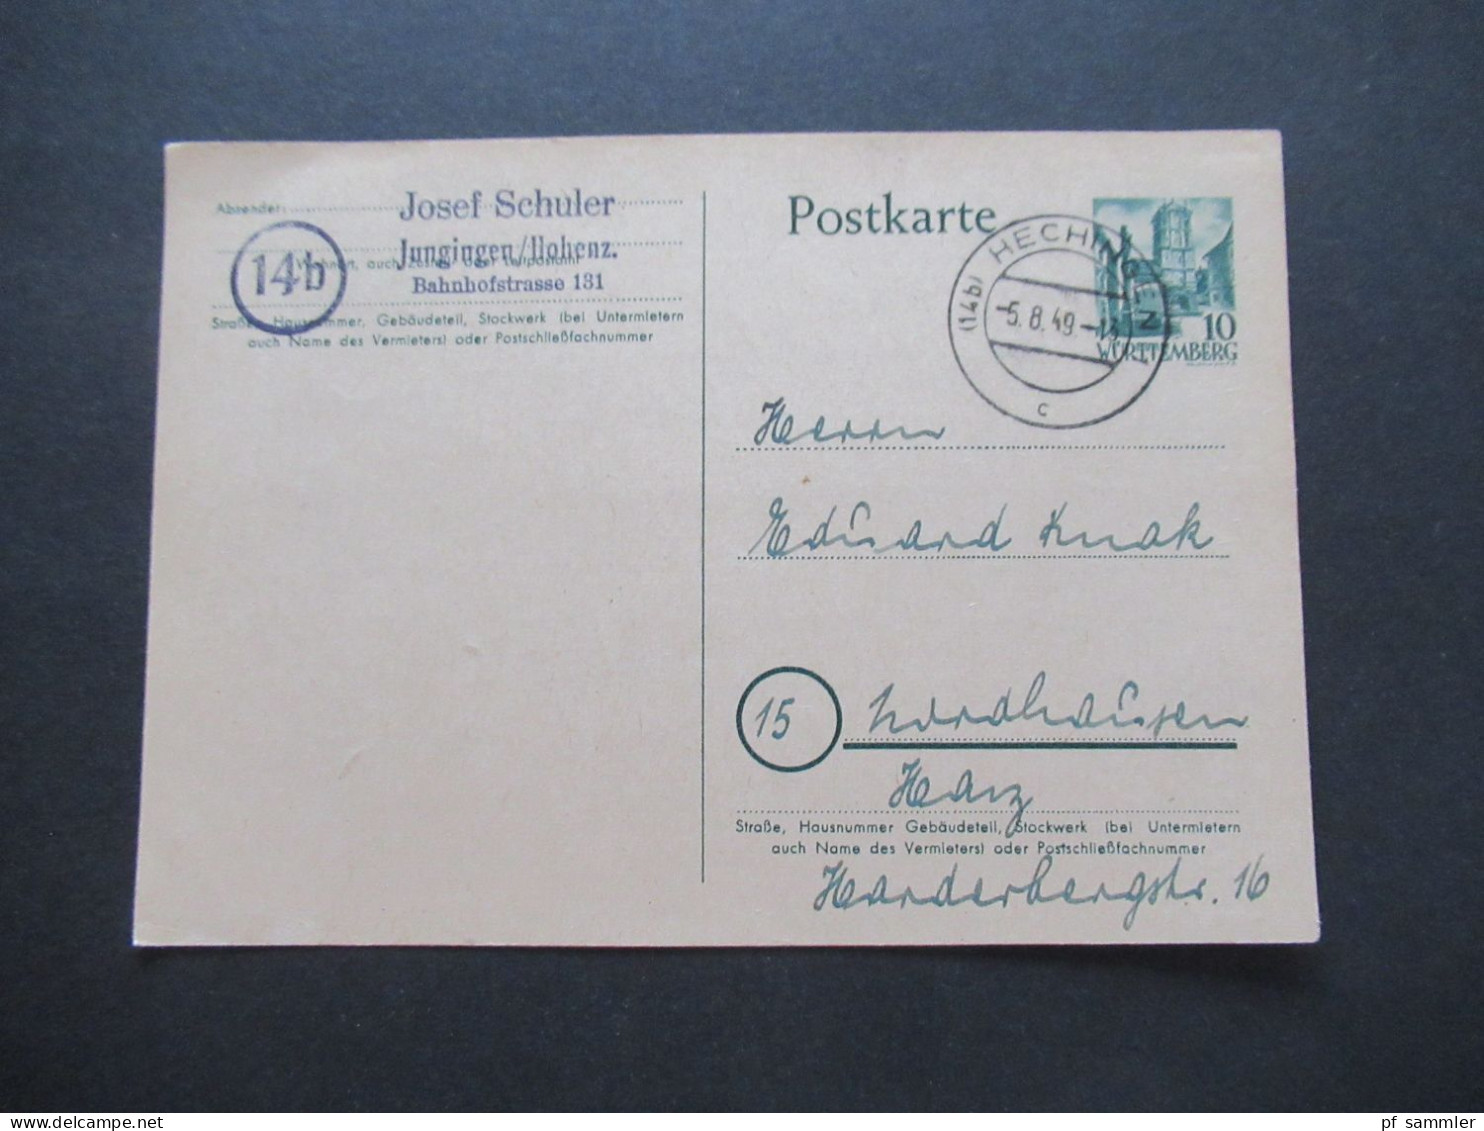 Absender:
Josef Schuler
Jungingen/Hohenz.
Bahnhofstrasse 131
14b
Wohnort, auch Zustell- oder Leitpostamt
Straße, Hausnummer, Gebäudeteil, Stockwerk (bei Untermietern
auch Name des Vermieters) oder Postschließfachnummer
Postkarte
(14b) HECHINGEN
-5.8.49.-13
c
10
WÜRTTEMBERG
Herrn
Eduard Knak
15
Nordhausen
Harz
Straße, Hausnummer Gebäudeteil, Stockwerk (bei Untermietern
auch Name des Vermieters) oder Postschließfachnummer
Harderbergstr. 16
pf_sammler